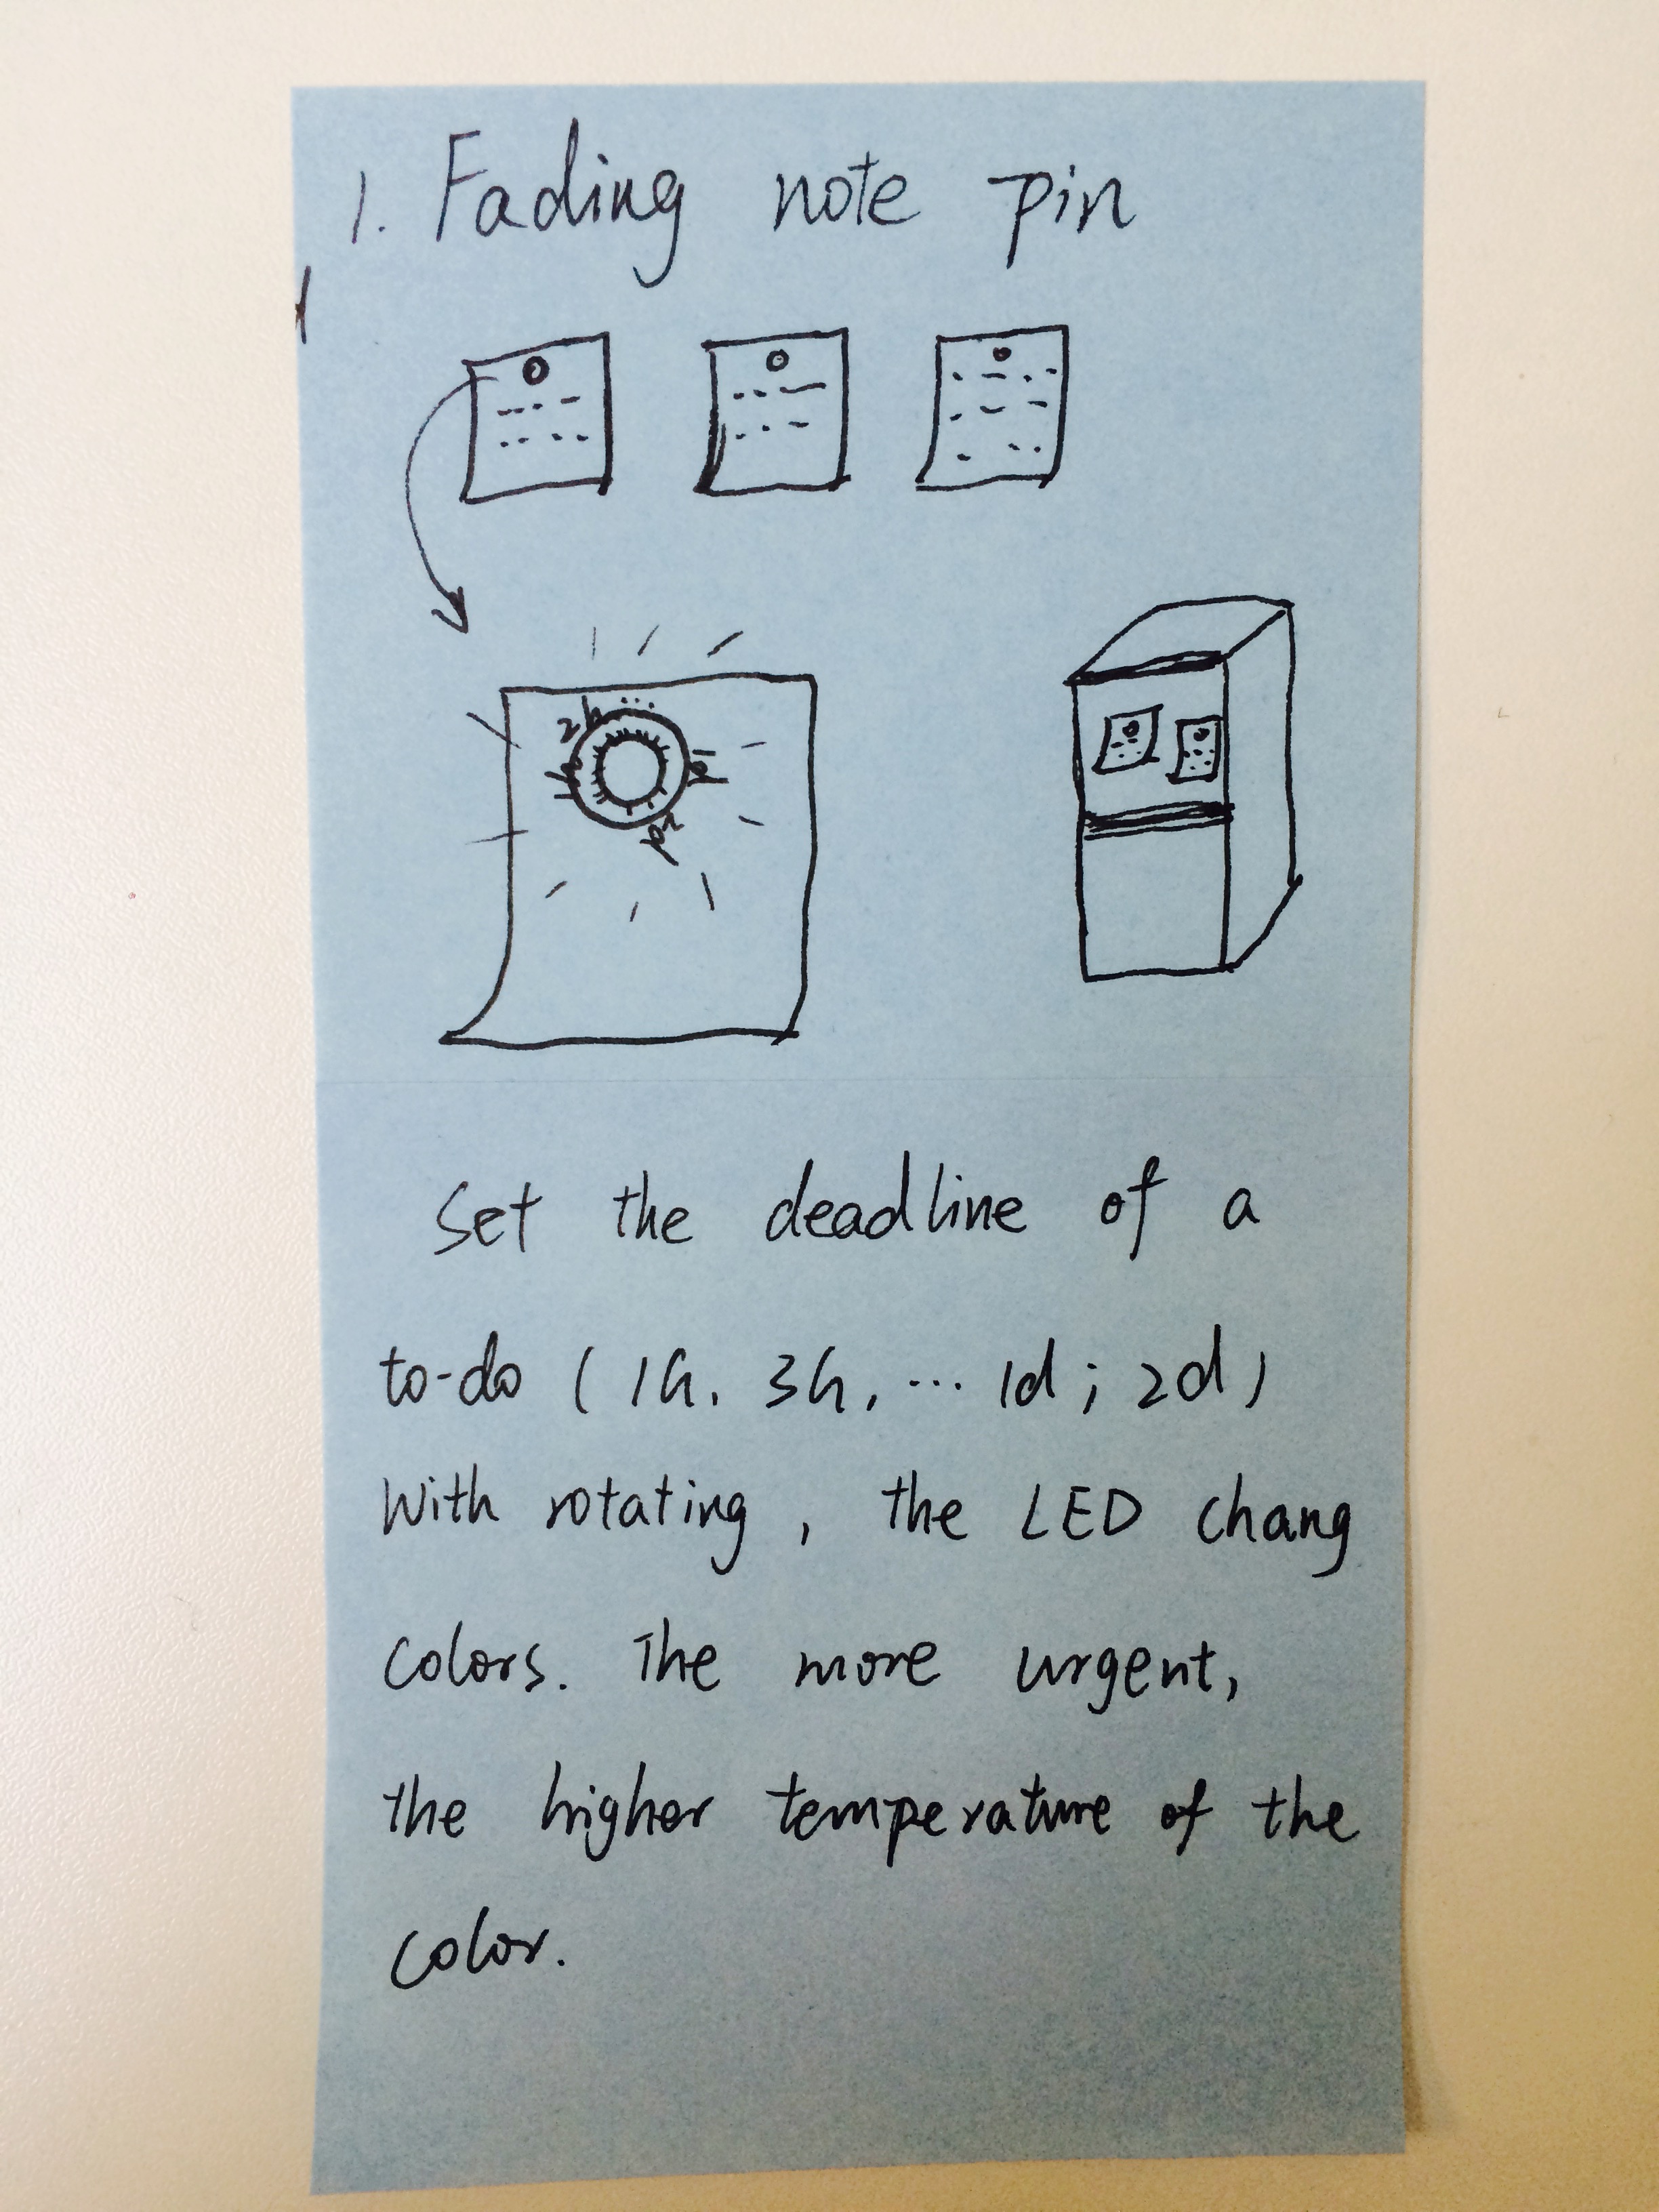 1. Fading note pin
2h ...
1h
1d
2d
Set the deadline of a
to-do ( 1h, 3h, ... 1d ; 2d )
With rotating, the LED chang
colors. The more urgent,
the higher temperature of the
color.